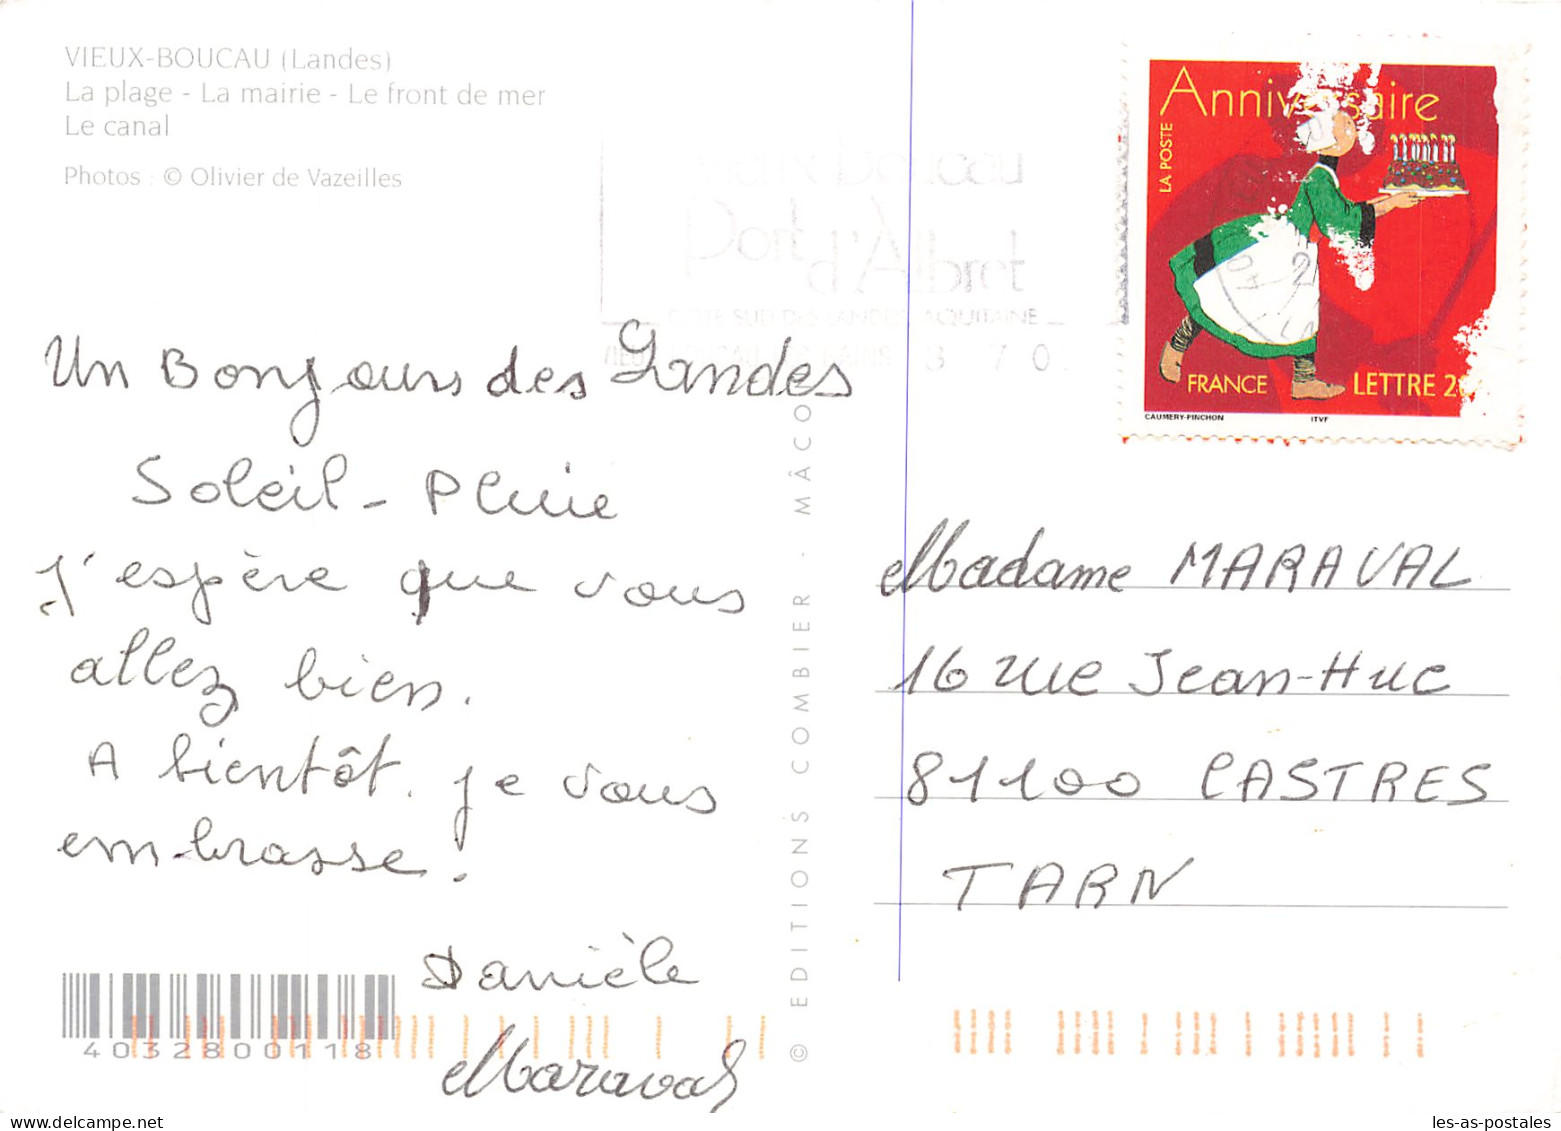 VIEUX-BOUCAU (Landes)
La plage - La mairie - Le front de mer
Le canal
Photos : © Olivier de Vazeilles
Boucau
Port
d'Albret
CÔTE SUD DES LANDES AQUITAINE
Anniversaire
LA POSTE
FRANCE
LETTRE 20
CAUMERY-PINCHON
ITVF
Un Bonjour des Landes
Soleil - Pluie
J'espère que vous
allez bien.
A bientôt. je vous
embrasse.
Danièle
Maraval
4032800118
© EDITIONS COMBIER - MÂCON
Madame MARAVAL
16 rue Jean-Huc
81100 CASTRES
TARN
les-as-postales